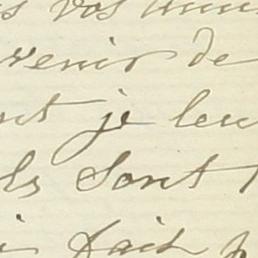 s vos
venir de
nt je leu
ls sont
fait p